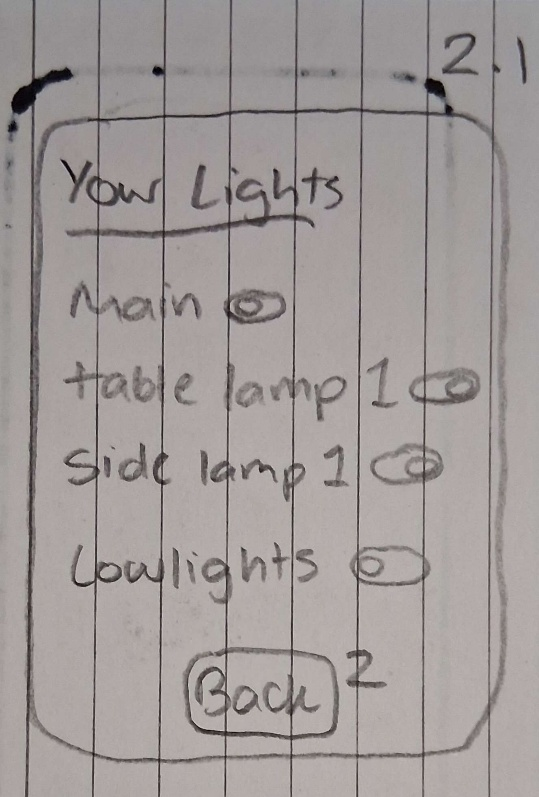 2.1
Your Lights
Main
table lamp 1
Side lamp 1
Lowlights
Back 2